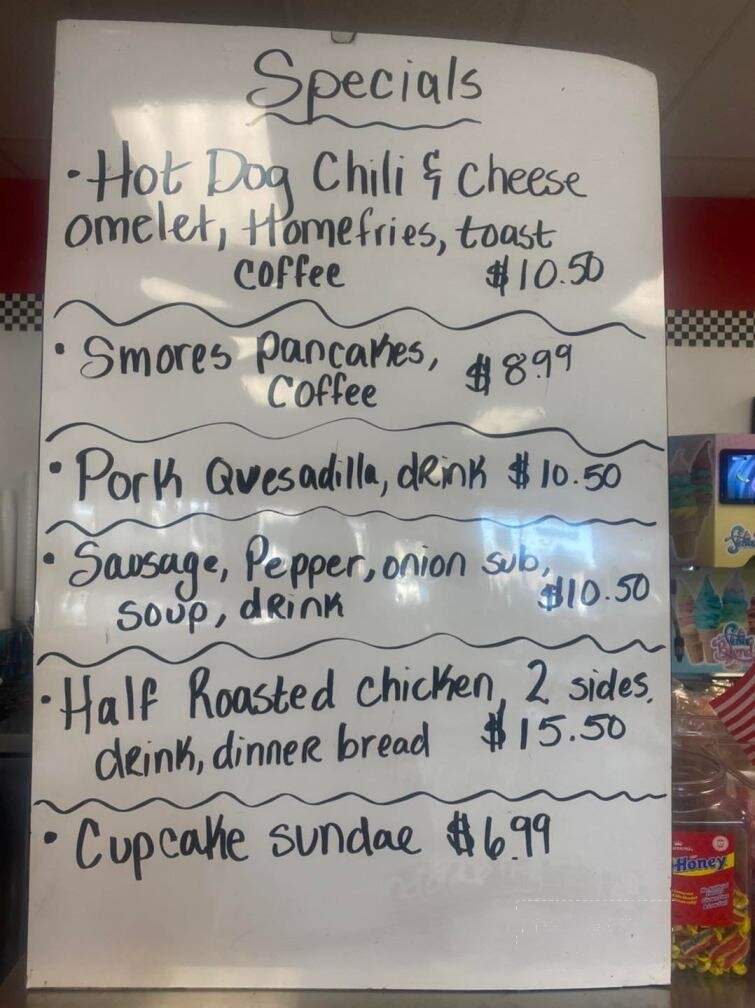 Specials
• Hot Dog Chili & Cheese
omelet, Homefries, toast
coffee $10.50
• Smores pancakes, $8.99
coffee
• Pork Quesadilla, drink $10.50
• Sausage, Pepper, onion sub,
soup, drink $10.50
• Half Roasted chicken, 2 sides,
drink, dinner bread $15.50
• Cupcake sundae $6.99
Honey